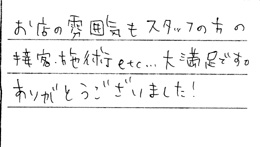 お店の雰囲気もスタッフの方の
接客・施術etc...大満足です。
ありがとうございました!